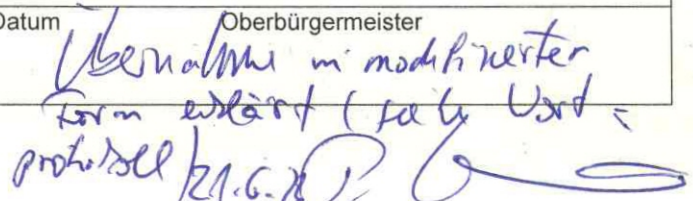 Datum Oberbürgermeister
Übernahme in modifizierter
Form erklärt (siehe Wort-
protokoll